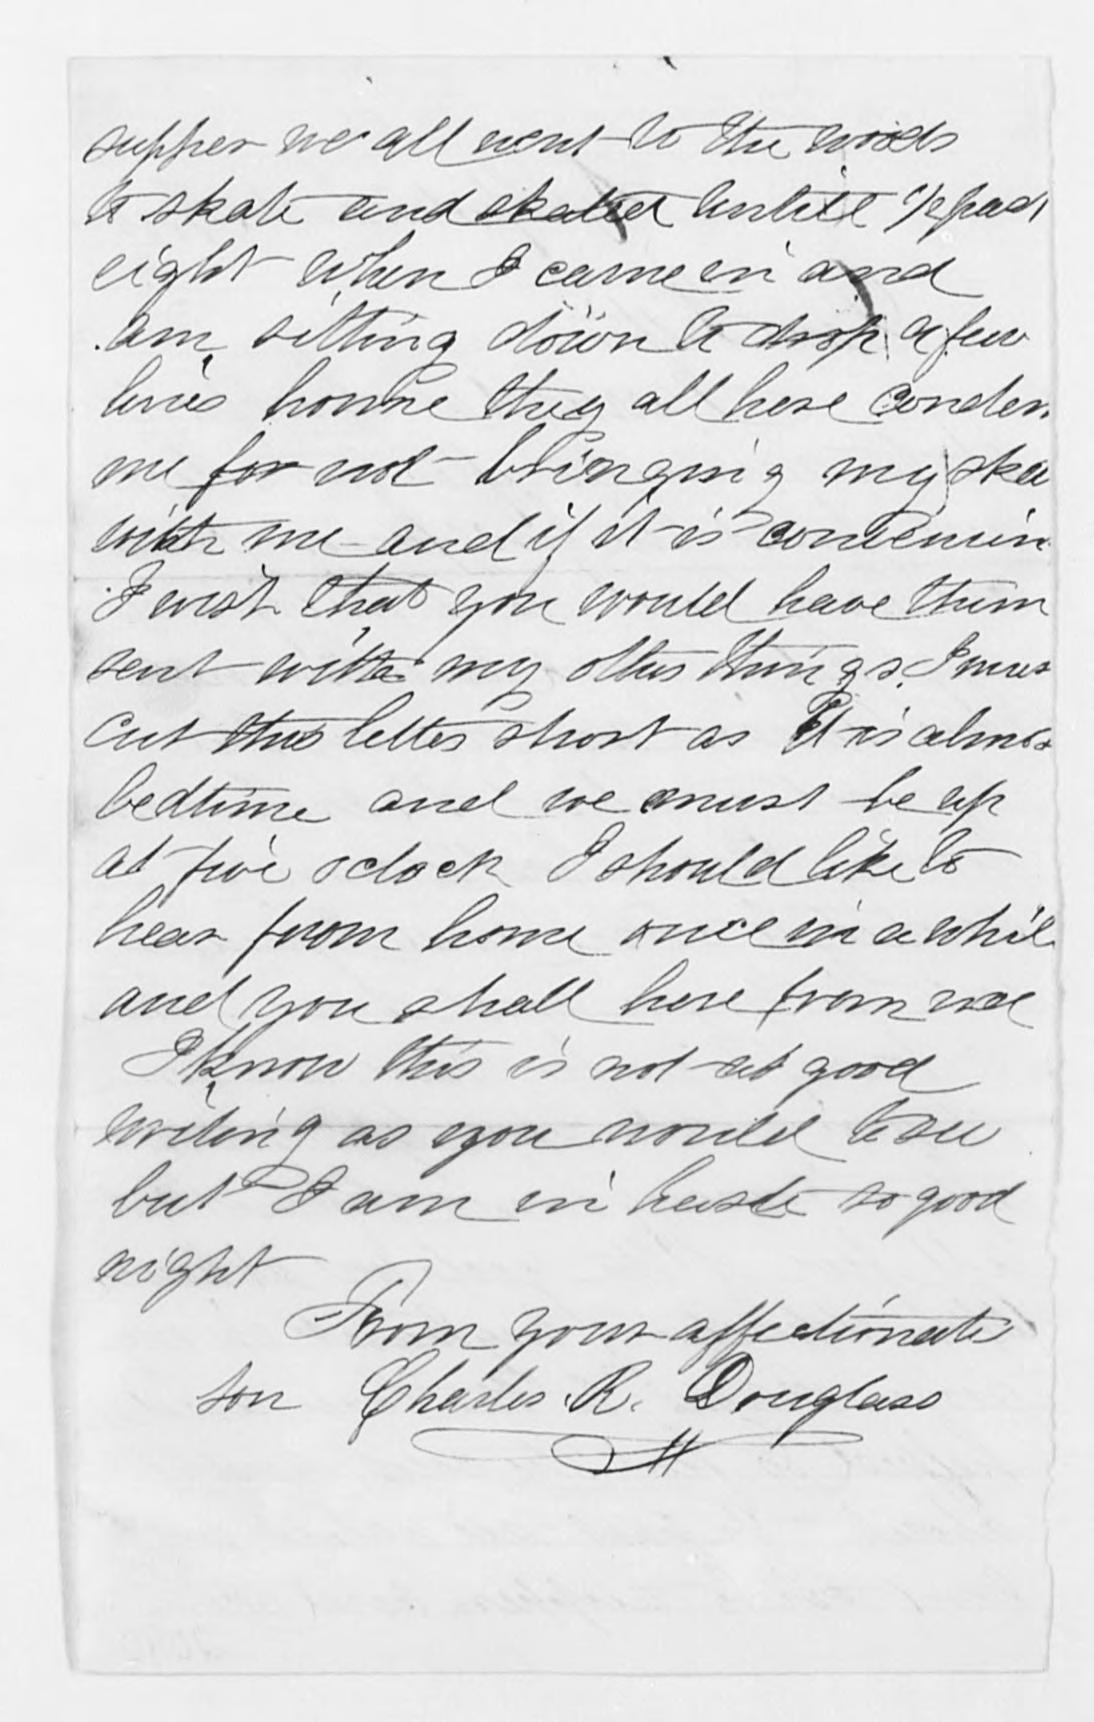 supper we all went to the woods
to skate and skated untill 1/2 past
eight when I came in and
am sitting down to drop a few
lines home they all here condem
me for not bringing my ska
with me and if it is convenien
I wish that you would have them
sent with my other things. I mus
cut this letter short as it is almos
bedtime and we must be up
at five oclock I should like to
hear from home once in a whil
and you shall here from me
I know this is not as good
writing as you would to see
but I am in haste so good
night
From your affectionate
son Charles R. Douglass